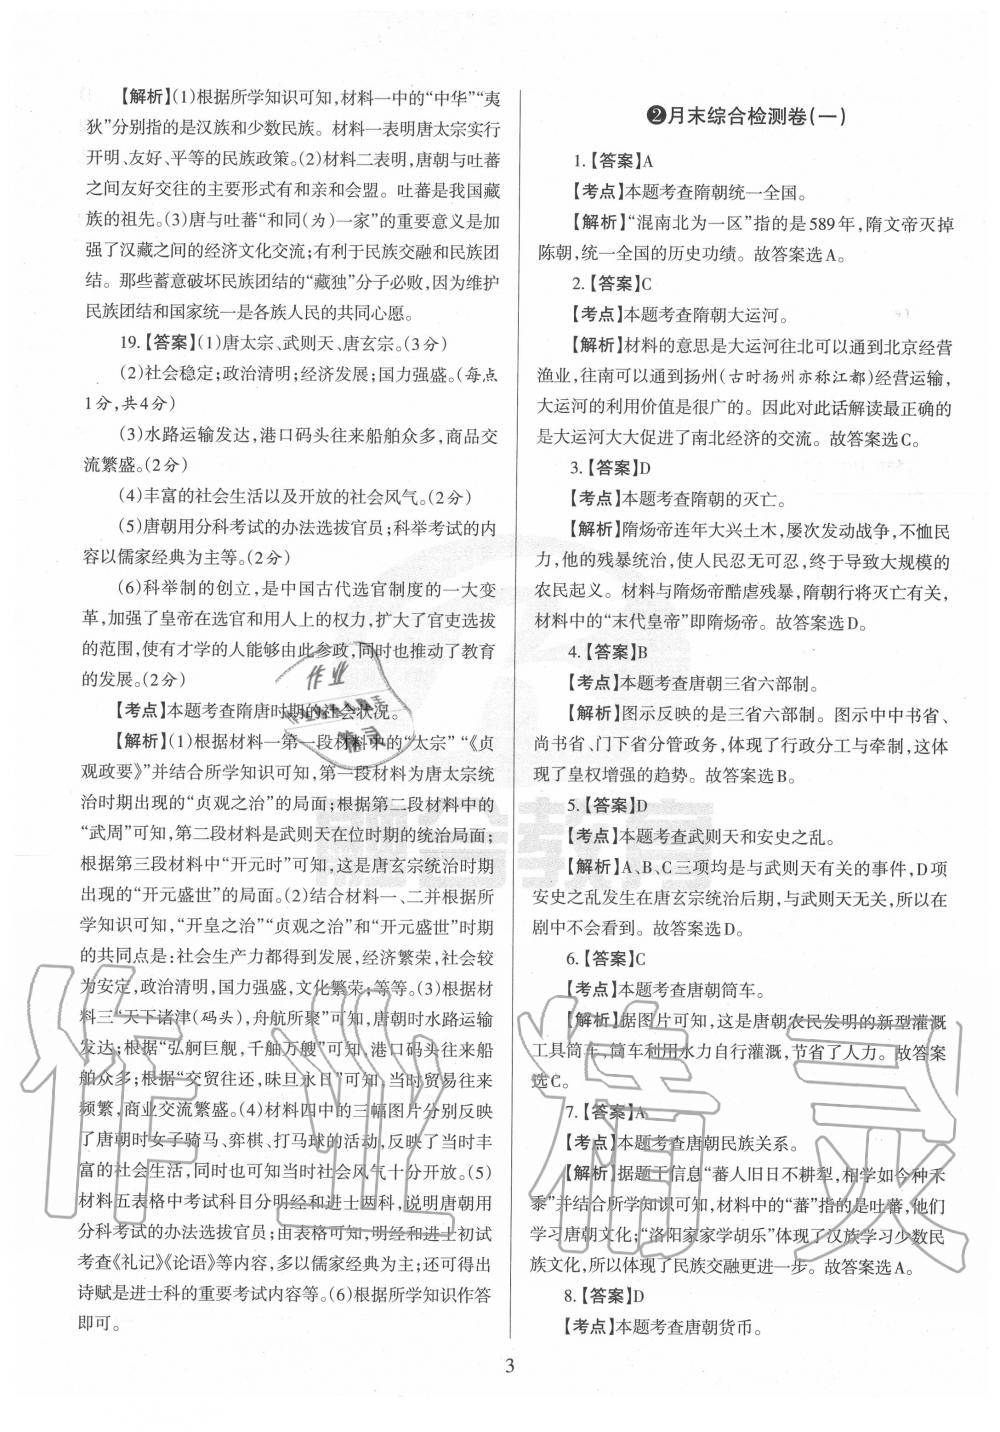 【解析】(1)根据所学知识可知,材料一中的“中华”“夷
狄”分别指的是汉族和少数民族。材料一表明唐太宗实行
开明、友好、平等的民族政策。(2)材料二表明,唐朝与吐蕃
之间友好交往的主要形式有和亲和会盟。吐蕃是我国藏
族的祖先。(3)唐与吐蕃“和同(为)一家”的重要意义是加
强了汉藏之间的经济文化交流;有利于民族交融和民族团
结。那些蓄意破坏民族团结的“藏独”分子必败,因为维护
民族团结和国家统一是各族人民的共同心愿。
19.【答案】(1)唐太宗、武则天、唐玄宗。(3分)
(2)社会稳定;政治清明;经济发展;国力强盛。(每点
1分,共4分)
(3)水路运输发达,港口码头往来船舶众多,商品交
流繁盛。(2分)
(4)丰富的社会生活以及开放的社会风气。(2分)
(5)唐朝用分科考试的办法选拔官员;科举考试的内
容以儒家经典为主等。(2分)
(6)科举制的创立,是中国古代选官制度的一大变
革,加强了皇帝在选官和用人上的权力,扩大了官吏选拔
的范围,使有才学的人能够由此参政,同时也推动了教育
的发展。(2分)
【考点】本题考查隋唐时期的社会状况。
【解析】(1)根据材料一第一段材料中的“太宗”“《贞
观政要》”并结合所学知识可知,第一段材料为唐太宗统
治时期出现的“贞观之治”的局面;根据第二段材料中的
“武周”可知,第二段材料是武则天在位时期的统治局面;
根据第三段材料中“开元时”可知,这是唐玄宗统治时期
出现的“开元盛世”的局面。(2)结合材料一、二并根据所
学知识可知,“开皇之治”“贞观之治”和“开元盛世”时期
的共同点是:社会生产力都得到发展,经济繁荣,社会较
为安定,政治清明,国力强盛,文化繁荣;等等。(3)根据材
料三“天下诸津(码头),舟航所聚”可知,唐朝时水路运输
发达;根据“弘舸巨舰,千舳万艘”可知,港口码头往来船
舶众多;根据“交贸往还,昧旦永日”可知,当时贸易往来
频繁,商业交流繁盛。(4)材料四中的三幅图片分别反映
了唐朝时女子骑马、弈棋、打马球的活动,反映了当时丰
富的社会生活,同时也可知当时社会风气十分开放。(5)
材料五表格中考试科目分明经和进士两科,说明唐朝用
分科考试的办法选拔官员;由表格可知,明经和进士初试
考查《礼记》《论语》等内容,多以儒家经典为主;还可得出
诗赋是进士科的重要考试内容等。(6)根据所学知识作答
即可。
❷月末综合检测卷(一)
1.【答案】A
【考点】本题考查隋朝统一全国。
【解析】“混南北为一区”指的是589年,隋文帝灭掉
陈朝,统一全国的历史功绩。故答案选A。
2.【答案】C
【考点】本题考查隋朝大运河。
【解析】材料的意思是大运河往北可以通到北京经营
渔业,往南可以通到扬州(古时扬州亦称江都)经营运输,
大运河的利用价值是很广的。因此对此话解读最正确的
是大运河大大促进了南北经济的交流。故答案选C。
3.【答案】D
【考点】本题考查隋朝的灭亡。
【解析】隋炀帝连年大兴土木,屡次发动战争,不恤民
力,他的残暴统治,使人民忍无可忍,终于导致大规模的
农民起义。材料与隋炀帝酷虐残暴,隋朝行将灭亡有关,
材料中的“末代皇帝”即隋炀帝。故答案选D。
4.【答案】B
【考点】本题考查唐朝三省六部制。
【解析】图示反映的是三省六部制。图示中中书省、
尚书省、门下省分管政务,体现了行政分工与牵制,这体
现了皇权增强的趋势。故答案选B。
5.【答案】D
【考点】本题考查武则天和安史之乱。
【解析】A、B、C三项均是与武则天有关的事件,D项
安史之乱发生在唐玄宗统治后期,与武则天无关,所以在
剧中不会看到。故答案选D。
6.【答案】C
【考点】本题考查唐朝筒车。
【解析】据图片可知,这是唐朝农民发明的新型灌溉
工具筒车,筒车利用水力自行灌溉,节省了人力。故答案
选C。
7.【答案】A
【考点】本题考查唐朝民族关系。
【解析】据题干信息“蕃人旧日不耕犁,相学如今种禾
黍”并结合所学知识可知,材料中的“蕃”指的是吐蕃,他们
学习唐朝文化;“洛阳家家学胡乐”体现了汉族学习少数民
族文化,所以体现了民族交融更进一步。故答案选A。
8.【答案】D
【考点】本题考查唐朝货币。
3
融合教育
作业精灵